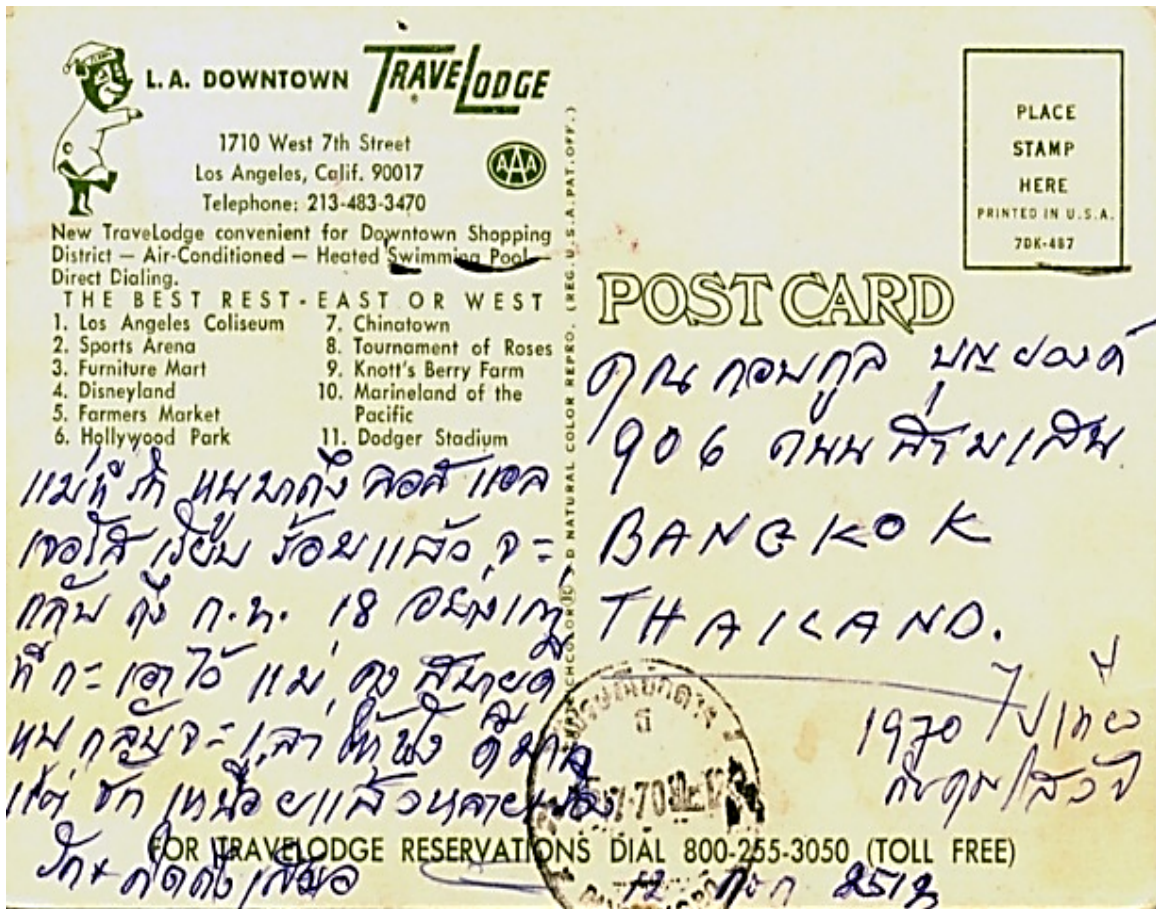 L.A. DOWNTOWN TRAVELODGE
1710 West 7th Street
Los Angeles, Calif. 90017
Telephone: 213-483-3470
AAA
New TraveLodge convenient for Downtown Shopping
District — Air-Conditioned — Heated Swimming Pool —
Direct Dialing.
THE BEST REST - EAST OR WEST
1. Los Angeles Coliseum
2. Sports Arena
3. Furniture Mart
4. Disneyland
5. Farmers Market
6. Hollywood Park
7. Chinatown
8. Tournament of Roses
9. Knott's Berry Farm
10. Marineland of the
Pacific
11. Dodger Stadium
แม่ที่รัก หนูมาถึง ลอสแอล
เจอริส เรียบร้อยแล้ว จะ
กลับถึง ก.ท. 18 อย่างเก่า
ที่กะเอาไว้ แม่คงสบายดี
หนูกลับจะเล่าให้ฟัง ดีมาก
แต่ชักเหนื่อยแล้วหลาย
รัก + คิดถึงเสมอ
FOR TRAVELODGE RESERVATIONS DIAL 800-255-3050 (TOLL FREE)
NATURAL COLOR REPRO. (REG. U.S.A. PAT. OFF.)
PLACE
STAMP
HERE
PRINTED IN U.S.A.
7DK-487
POST CARD
คุณ กอบกูล
906 ถนน สามเสน
BANGKOK
THAILAND.
1970 ไป
กับคุณ
12 กค